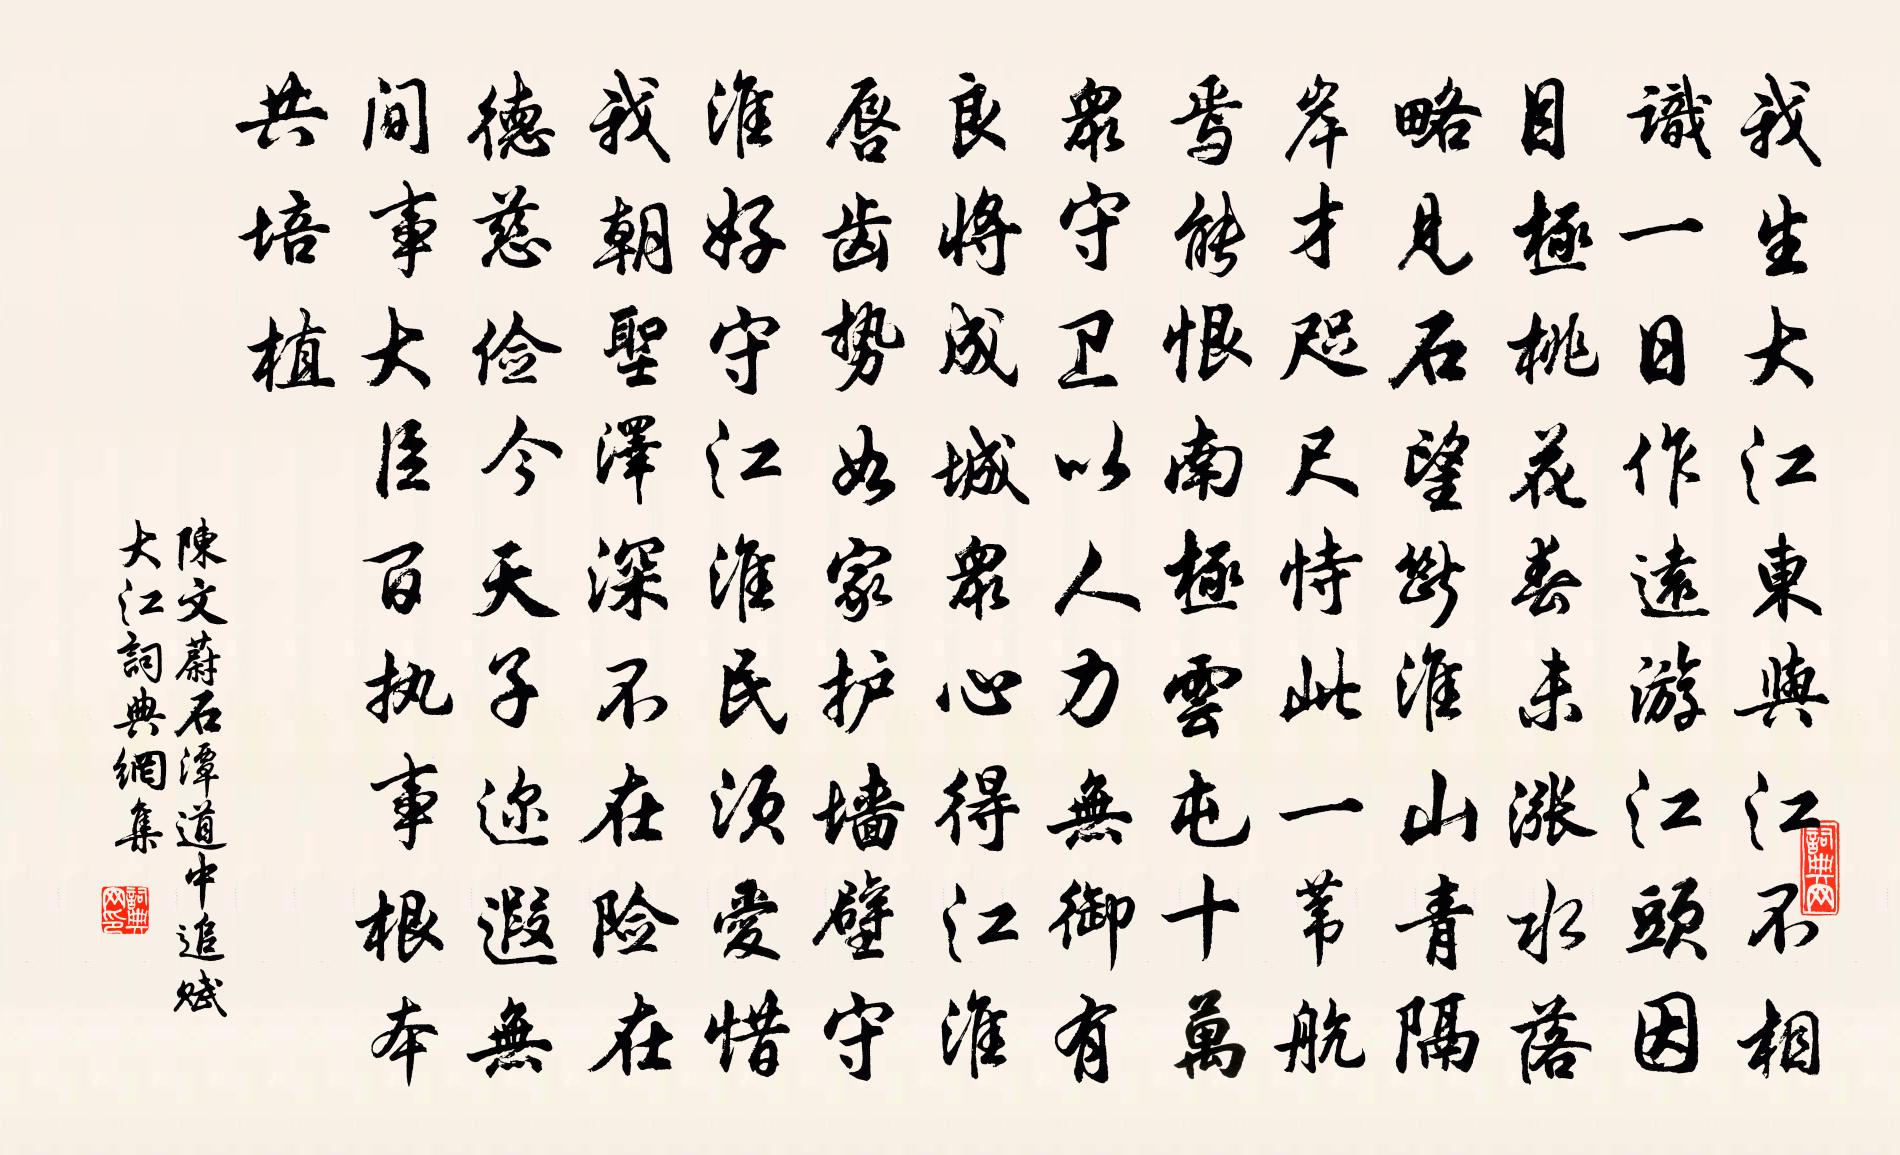 我生大江東與江不相
識一日作遠游江頭因
目極桃花春未漲水落
略見石望斷淮山青隔
岸才咫尺恃此一苇航
焉能恨南極雲屯十萬
眾守卫以人力無御有
良将成城眾心得江淮
唇齿势如家护墙壁守
淮好守江淮民须愛惜
我朝聖澤深不在险在
德慈俭今天子迩遐無
间事大臣百执事根本
共培植
陳文蔚石潭道中追赋
大江詞典網集
詞典网
詞典网印